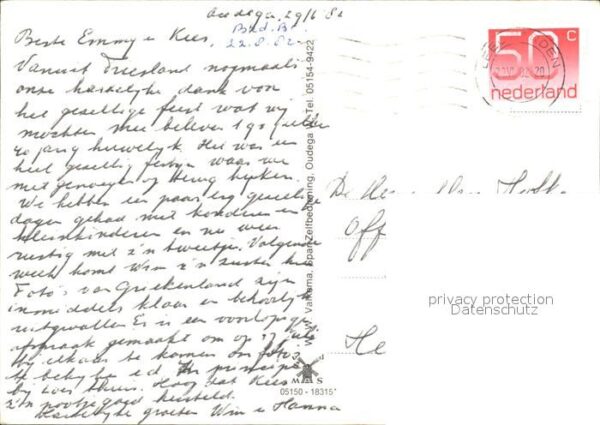 Oudega, 29/6 82
Beste Emmy en Kees,
22.8.82
Vanuit Friesland nogmaals
onze hartelijke dank voor
het gezellige feest wat wij
mochten mee beleven
40 jarig huwelijk. Het was een
heel gezellig feestje waar we
met genoegen op terug kijken.
We hebben een paar erg gezellige
dagen gehad met kinderen en
kleinkinderen en nu weer
rustig met z'n tweetjes. Volgende
week komt Wim z'n zuster hier
Foto's van Griekenland zijn
inmiddels klaar en behoorlijk
uitgevallen Er is een voorlopige
afspraak gemaakt om op 27
bij elkaar te komen om foto's
te bekijken e.d. In principe
bij Loes thuis. Hoop dat Kees
z'n pootje goed hersteld.
Hartelijke groeten Wim en Hanna
V.V.V. Valkema, Spar Zelfbediening, Oudega Tel. 05154-9422
MS
05150 - 18315*
50 c
nederland
De
Off
He
privacy protection
Datenschutz